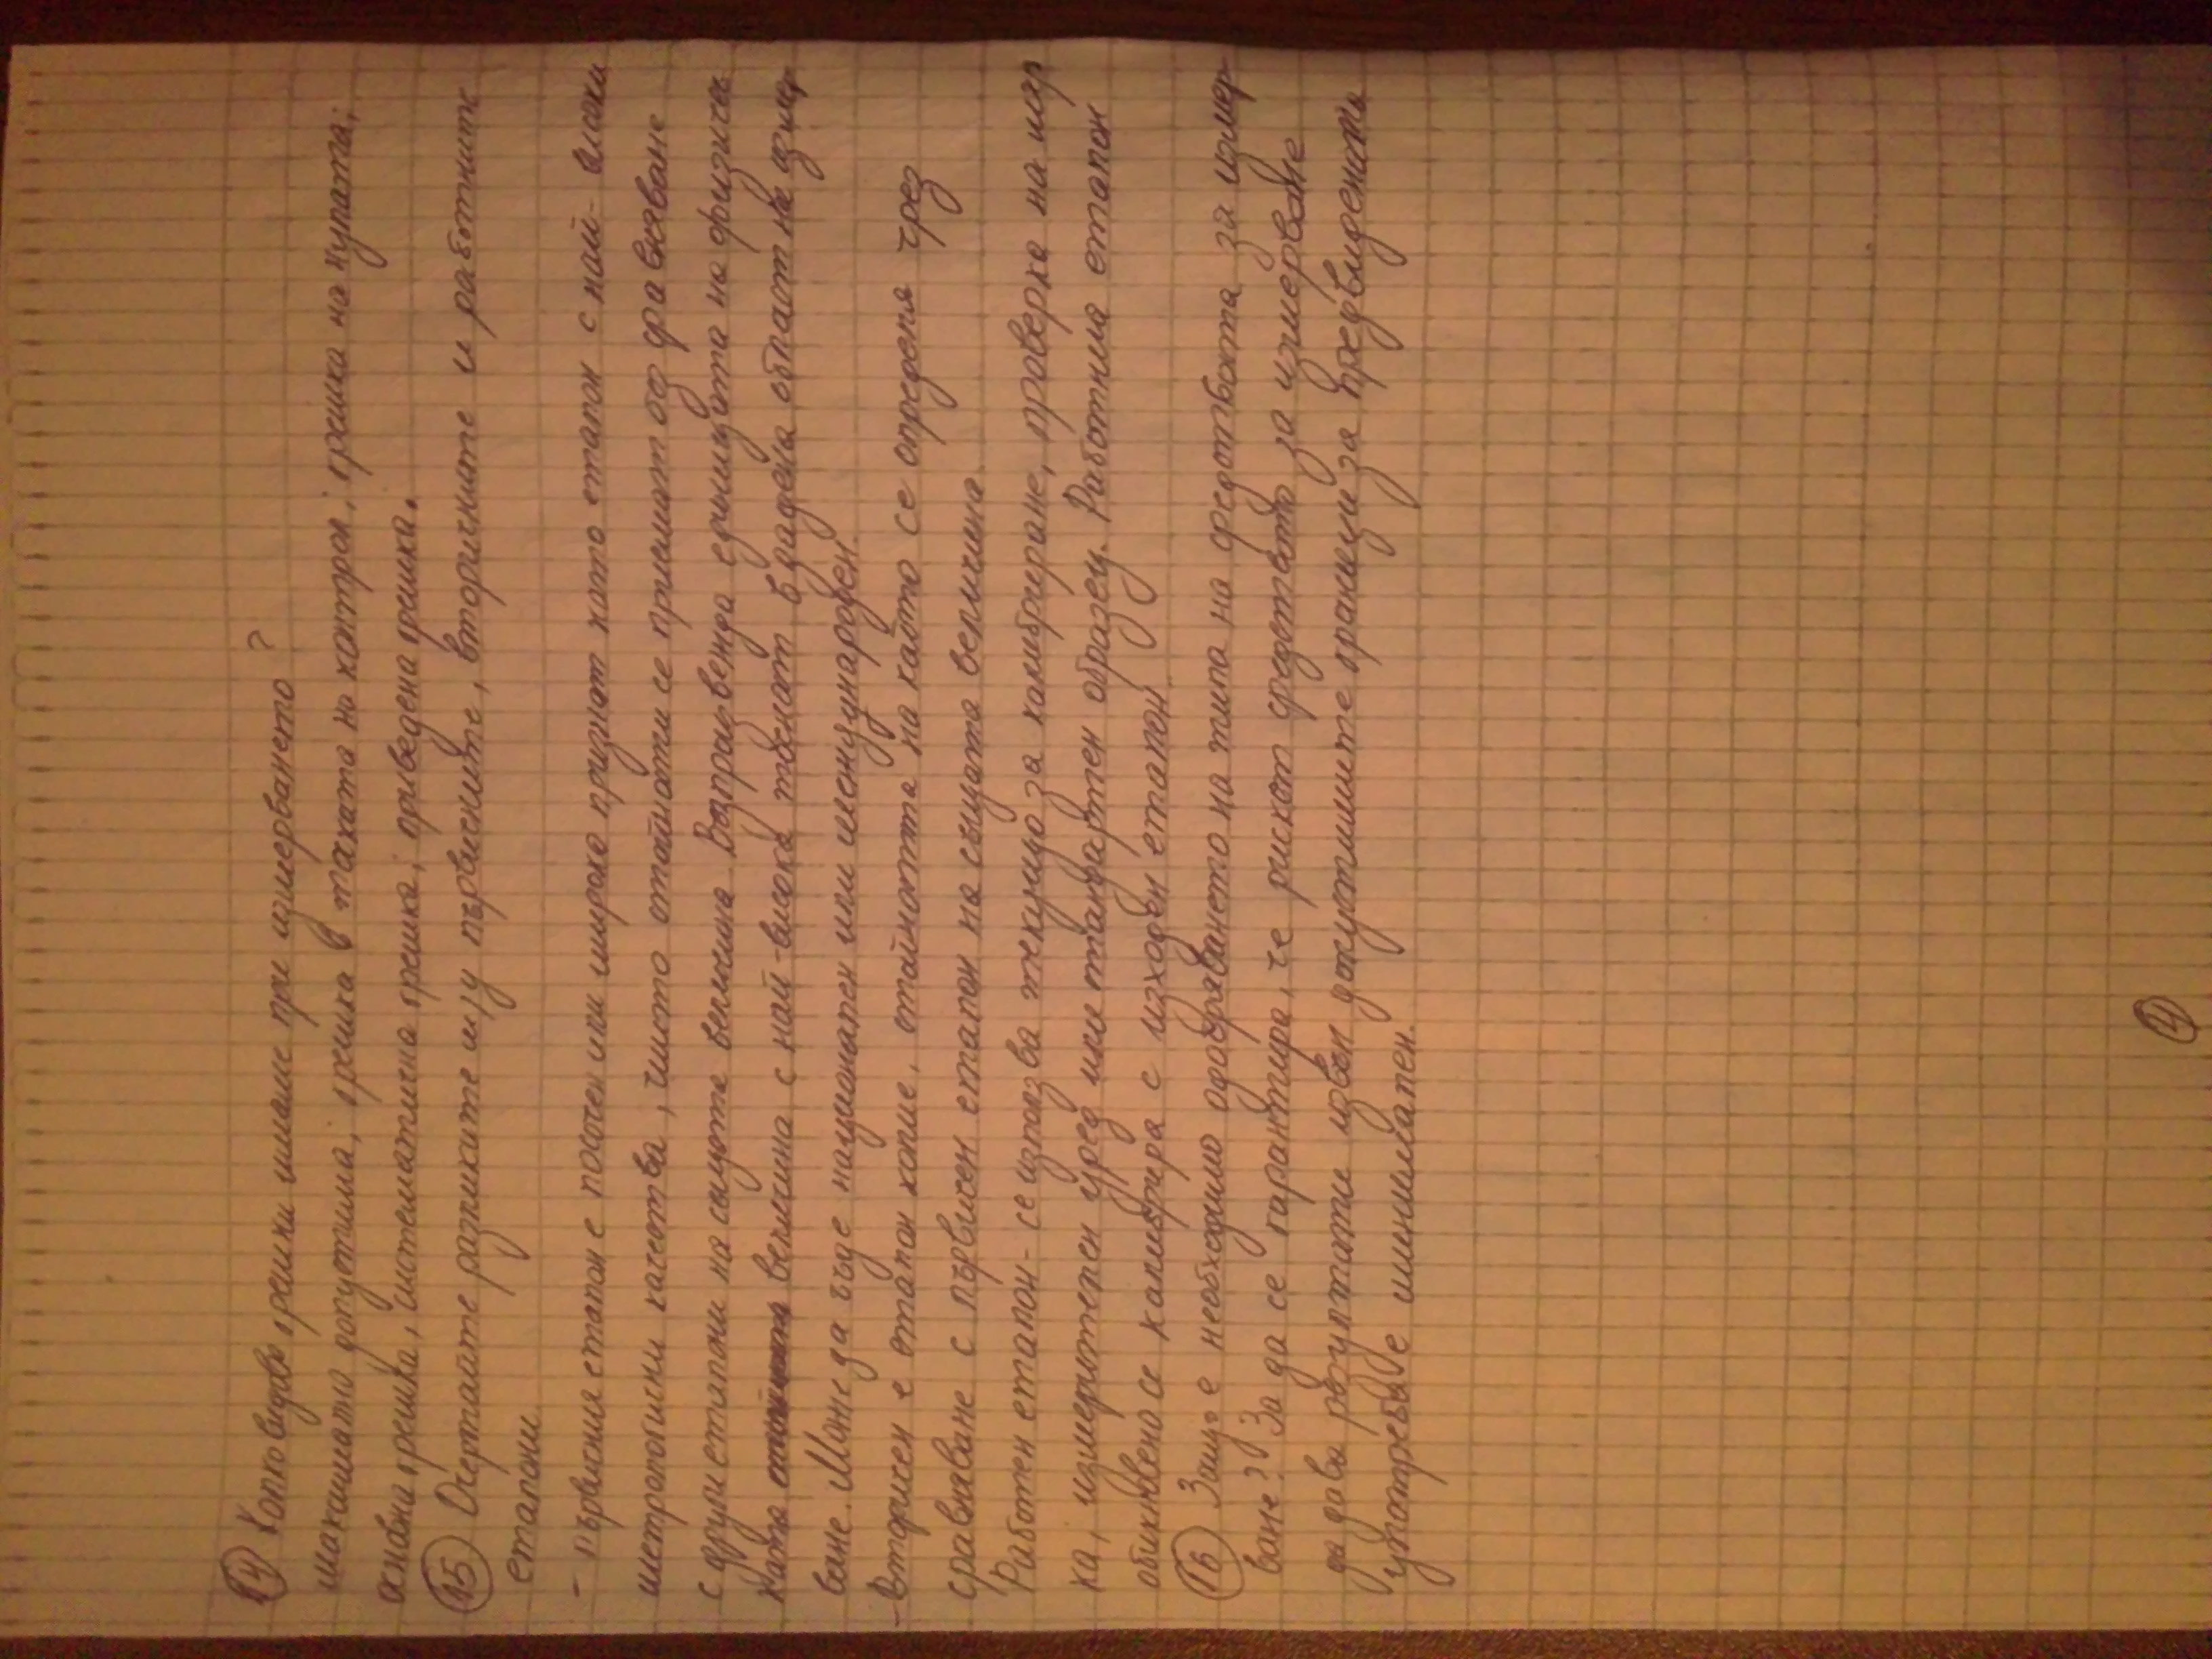 14 Колко вида грешки имаме при измерването?
максимално допустима, грешка в тахата на контрол; грешка на нулата;
основна грешка, систематична грешка; приведена грешка.
15 Очертайте разликите м/у първичните, вторичните и работните
еталони.
- първичния еталон е посочен или широко признат като еталон с най-високи
метрологични качества, чиято стойности се приемат без сравняване
с други еталони на същата величина. Възпроизвежда единицата на физичес
ката величина с най-висока точност в дадена област на измер
ване. Може да бъде национален или международен.
-Вторичен е еталон копие, стойността на който се определя чрез
сравняване с първичен еталон на същата величина.
Работен еталон - се използва текущо за калибриране, проверка на мяр
ка, измерителен уред или стандартен образец. Работния еталон
обикновено се калибрира с изходен еталон.
16 Защо е необходимо одобряването на типа на средствата за измер
ване? За да се гарантира, че рискът средството за измерване
да дава резултати извън допустимите граници за предвидената
употреба е минимален.
14